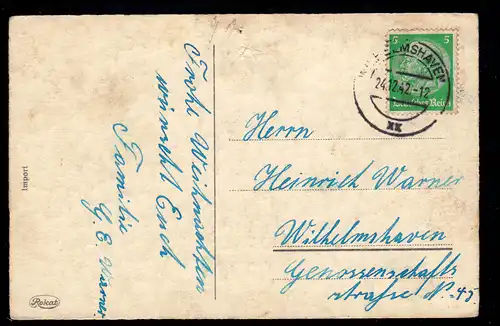 Frohe Weihnachten
wünscht Euch
Familie
G. E. Warner.
5 5
Deutsches Reich
WILHELMSHAVEN
24.12.42-12
XX
Herrn
Heinrich Warner
Wilhelmshaven
Genossenschafts
straße No. 45.
Import